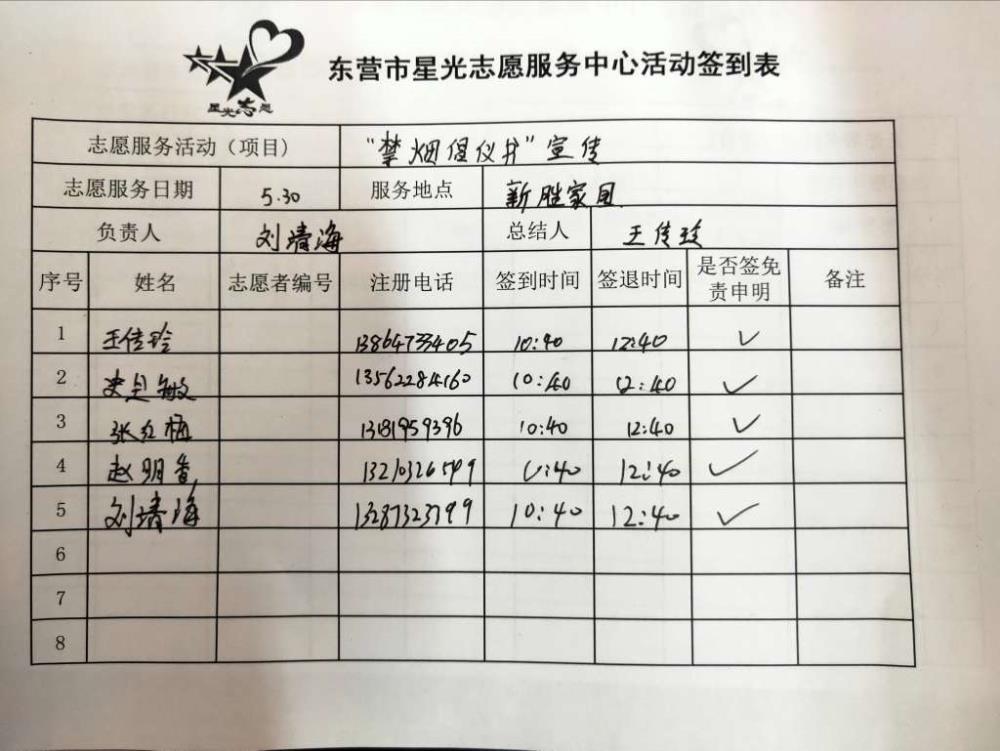 星光志愿
东营市星光志愿服务中心活动签到表
志愿服务活动（项目） “禁烟倡仪书”宣传
志愿服务日期 5.30 服务地点 新胜家园
负责人 刘靖海 总结人 王传玲
序号 姓名 志愿者编号 注册电话 签到时间 签退时间 是否签免责申明 备注
1 王传玲 13864733405 10:40 12:40 ✓
2 13562284160 10:40 12:40 ✓
3 张红梅 13181959396 10:40 12:40 ✓
4 赵明香 12:40 ✓
5 刘靖海 13287323799 10:40 12:40 ✓
6
7
8